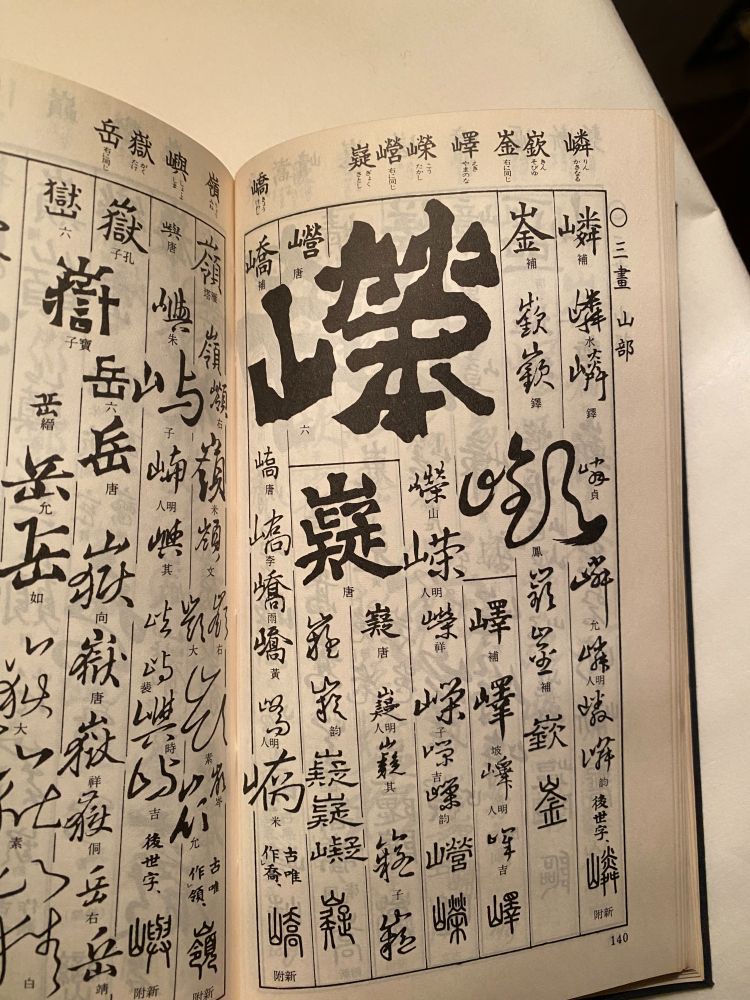 嶙 りん かさなる
嶔 きん そびゆ
崟 右に同じ
嶧 えき やまのな
嶸 こう たかし
巆 右に同じ
嶷 ぎょく さとし
嶠 きょう
〇三畫 山部
嶙補 嶙水 嶙鐸 嶙貞 嶙允 嶙明人 嶙 嶙韵 後世字、嶙新附
崟補 嶔 嶔鐸 嶔鳳 嶔 崟補 嶔 崟
嶸六
嶧補 嶧坡 嶧明人 嶧吉 嶧
嶸山 嶸明人 嶸祥 嶸子 嶸吉 嶸韵 巆 嶸
巆唐
嶷唐
嶷唐 嶷明人 嶷其 嶷子 嶷
嶷 嶷韵 嶷 嶷 嶷 嶷
嶠補 嶠唐 嶠李 嶠雨 嶠黃 嶠明人 嶠米 古唯作喬、嶠新附
140
嶺
嶼
嶽 がく たけ
岳 右に同じ
嶺 嶺 嶺右 嶺米 嶺文 嶺右 嶺大 嶺素 嶺岑 嶺允 古唯作領、嶺新附
嶼唐 嶼朱 嶼子 嶼明人 嶼其 嶼 嶼裴 嶼時 嶼吉 後世字、嶼新附
嶽孔子 岳六 岳唐 嶽向 嶽唐 嶽祥 嶽侗 岳右 岳靖
嶽六 嶽寶子 岳縉 岳允 岳如 嶽大 嶽素 嶽白